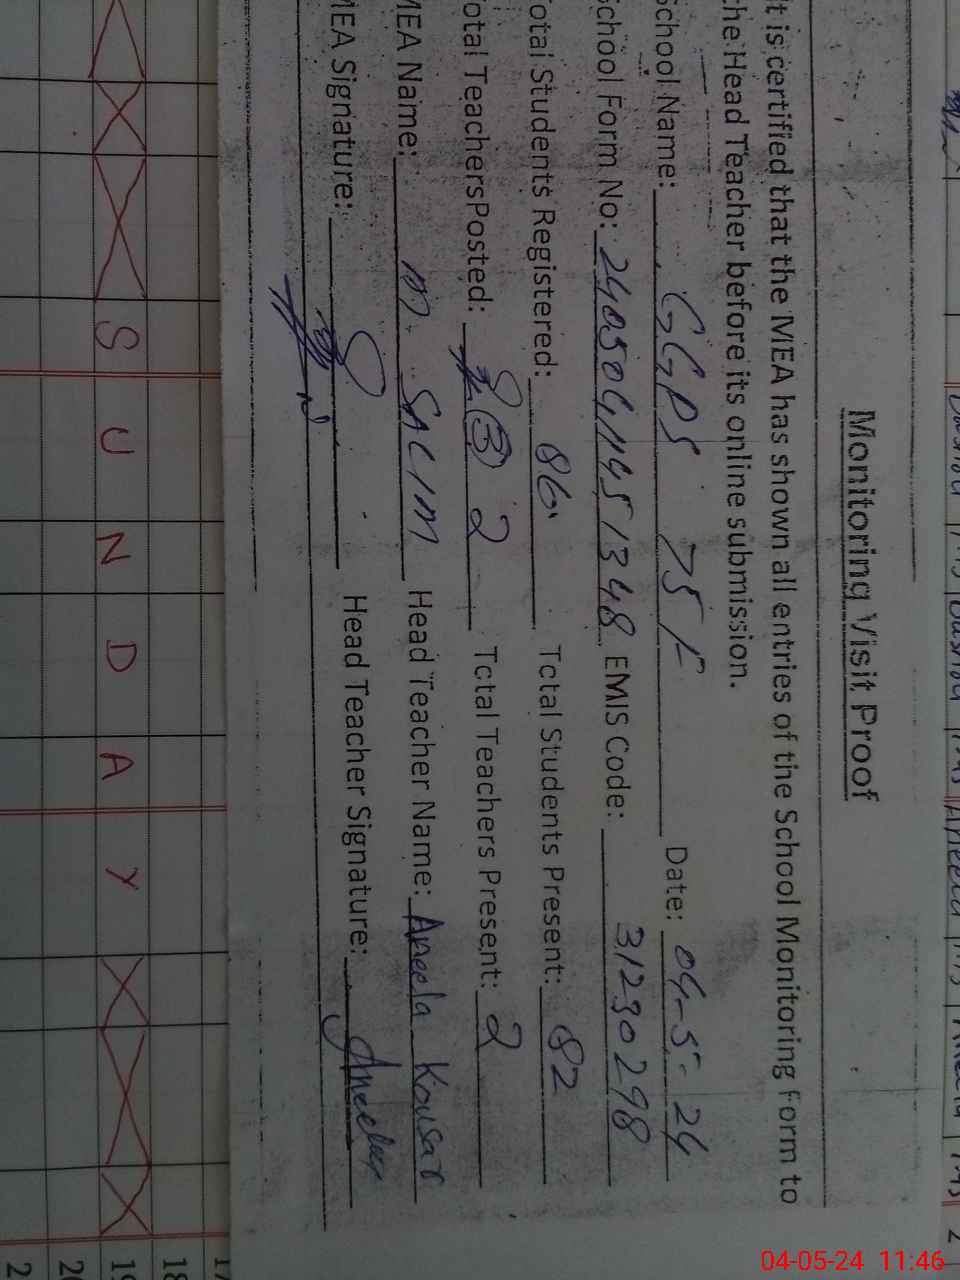 Monitoring Visit Proof
It is certified that the MEA has shown all entries of the School Monitoring Form to
the Head Teacher before its online submission.
School Name: GGPS 75 F Date: 04-5-24
School Form No: 240504114513 48 EMIS Code: 31230298
Total Students Registered: 86 Total Students Present: 82
Total TeachersPosted: 3 2 Total Teachers Present: 2
MEA Name: M. SALIM Head Teacher Name: Aneela Kousar
MEA Signature: Head Teacher Signature: Aneela
S U N D A Y
17
18
19
20
2
04-05-24 11:46